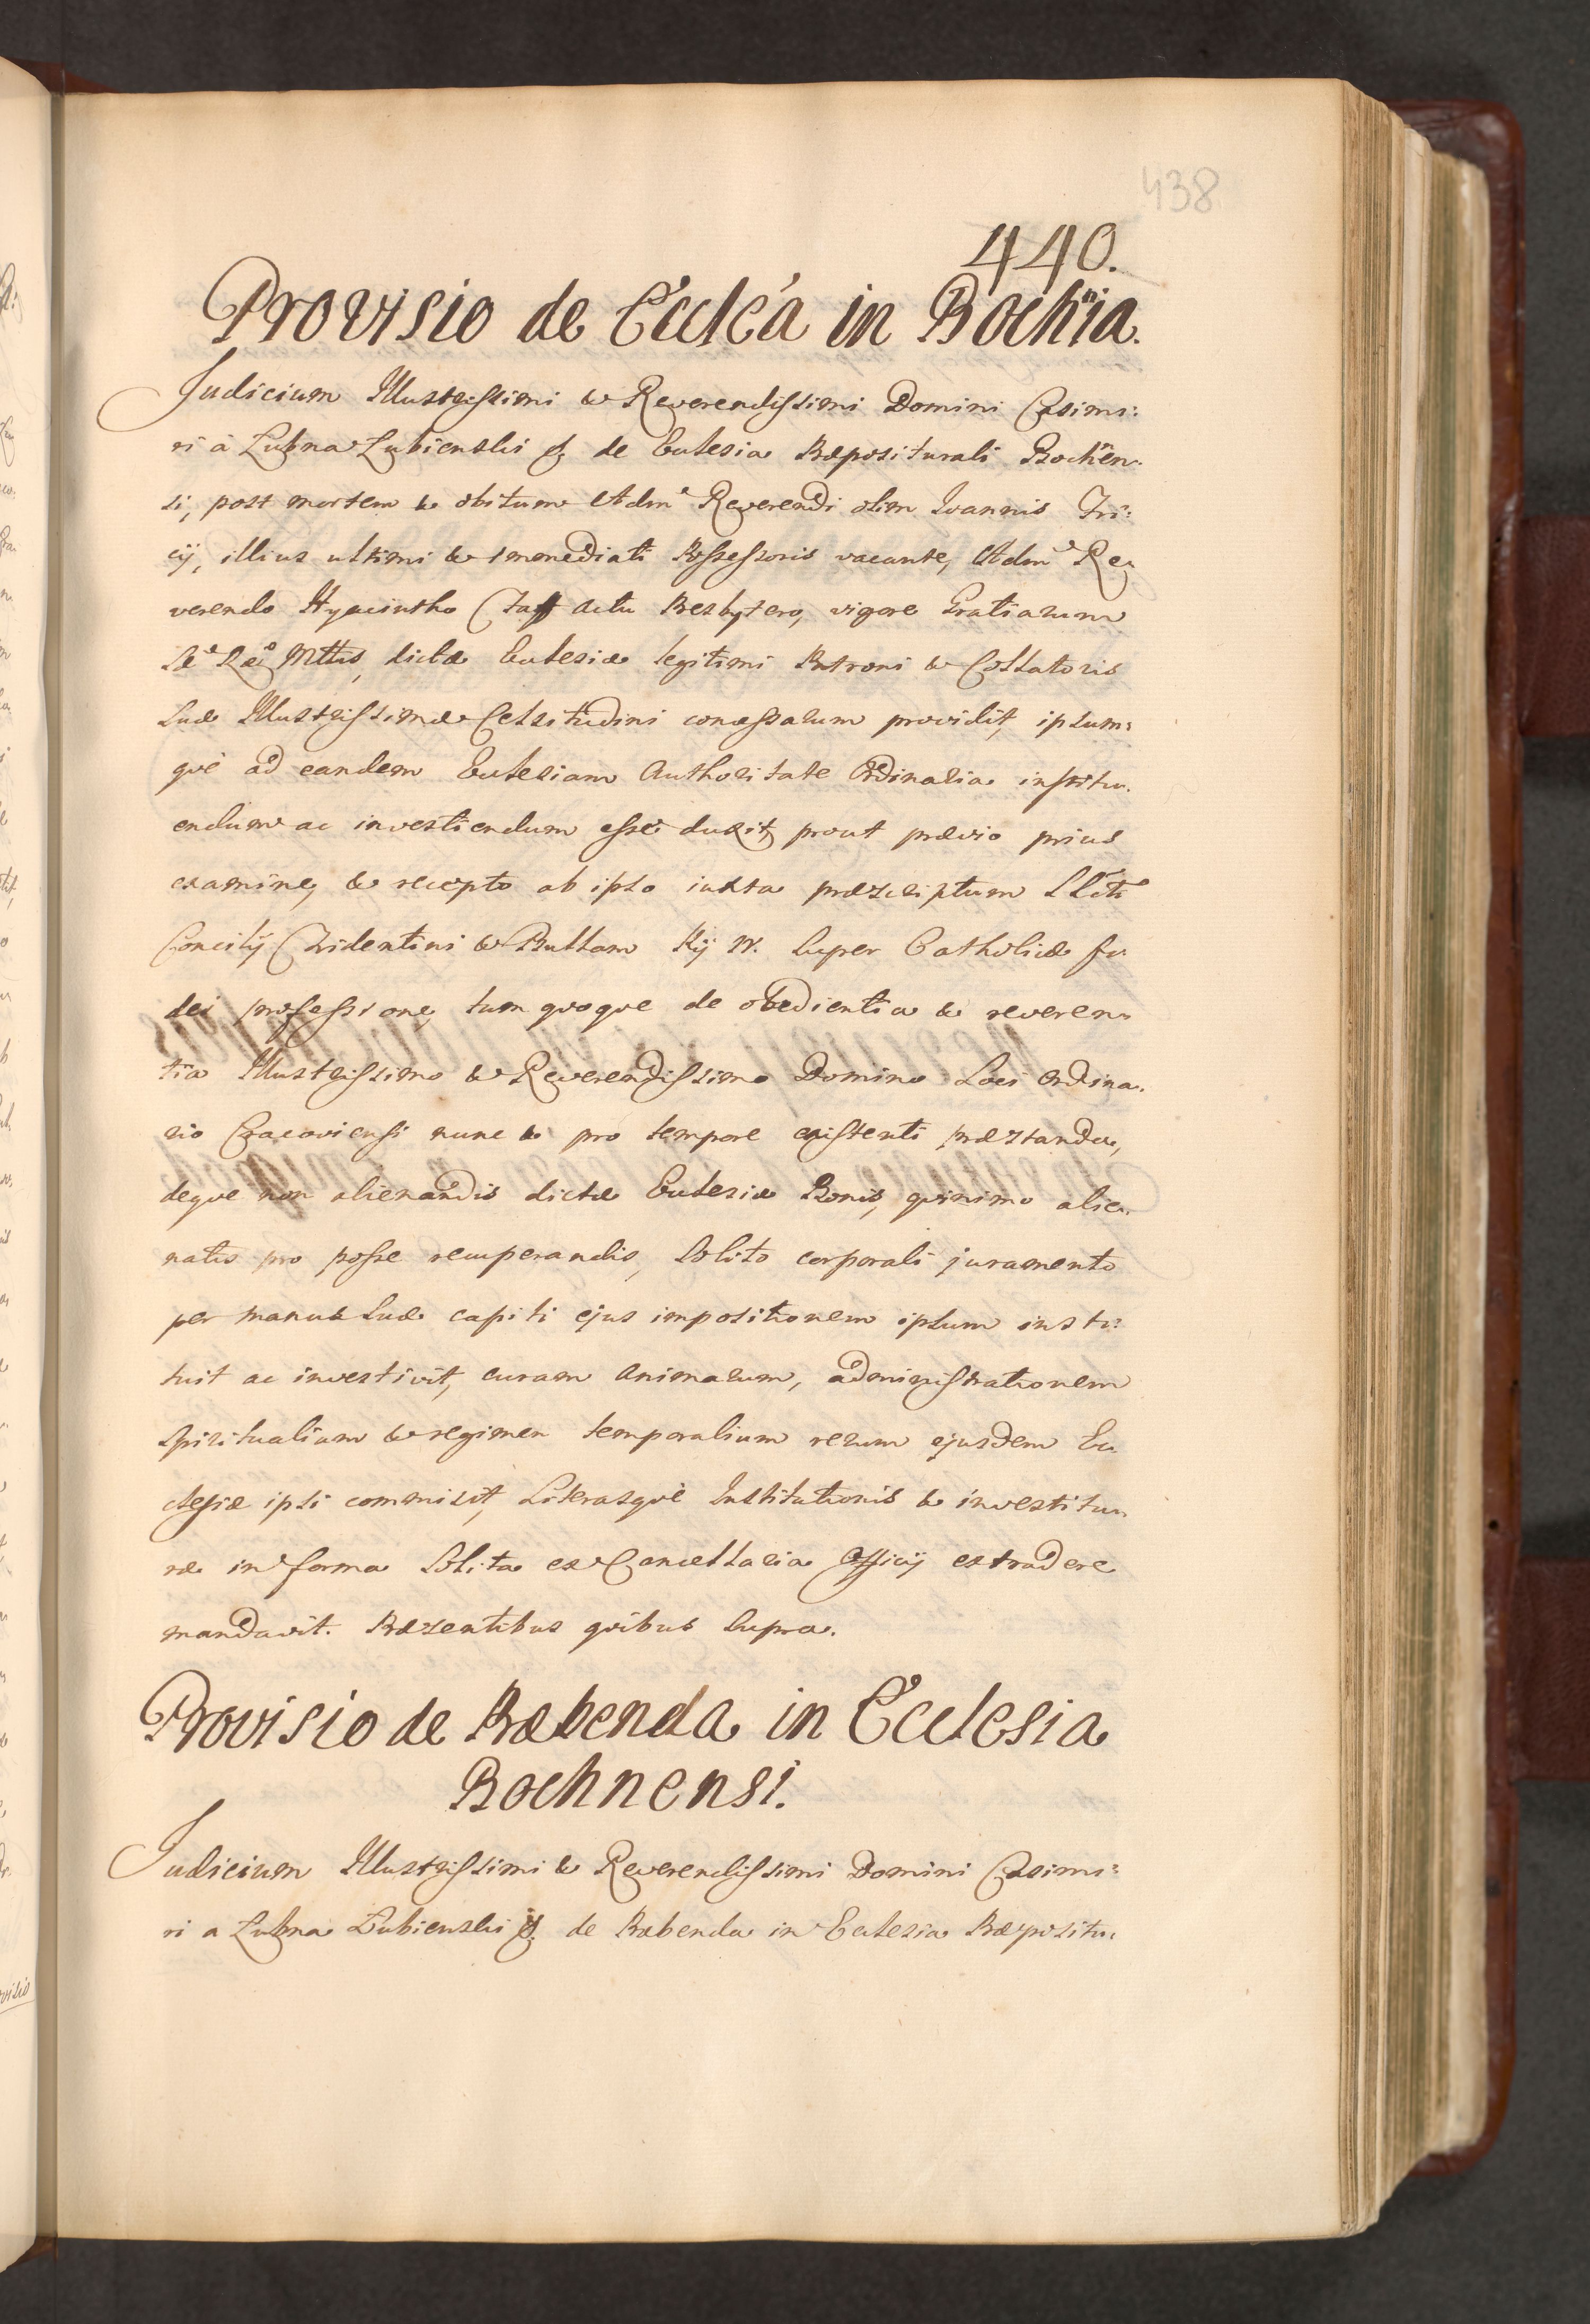 438
440.
Provisio de Eccle'a in Bochnia.
Judicium Illustrissimi & Reverendissimi Domini Casimi:
ri à Łubna Łubienski & de Ecclesia Præpositurali Bochnen:
si, post mortem & obitum Adm Reverendi olim Ioannis Tri:
cij, illius ultimi & immediati Possessoris vacante, Adm Re
verendo Hyacintho actu Presbytero, vigore Gratiarum
Mttis, dictæ Ecclesiæ legitimi Patroni & Collatoris
Suæ Illustrissimæ Celsitudini concessarum providit, ipsum:
què ad eandem Ecclesiam Authoritate Ordinaria institu:
endum ac investiendum esse duxit, prout prævio prius
examine, & recepto ab ipso iuxta præscriptum
Concilij Tridentini & Bullam Pij IV. super Catholicæ fi:
dei professione, tum quoque de obedientia & reveren:
tia Illustrissimo & Reverendissimo Domino Loci Ordina:
rio Cracoviensi nunc & pro tempore existenti præstanda,
deque non alienandis dictæ Ecclesiæ Bonis, quinimo alie:
natis pro posse recuperandis, solito corporali juramento
per manus suæ capiti ejus impositionem ipsum insti:
tuit ac investivit, curam animarum, administrationem
spiritualium & regimen temporalium rerum ejusdem Ec
clesiæ ipsi commisit, Literasquè Institutionis & investitu:
ræ in forma solita ex Cancellaria Officij extradere
mandavit. Præsentibus quibus supra.
Provisio de Præbenda in Ecclesia
Bochnensi.
Judicium Illustrissimi & Reverendissimi Domini Casimi:
ri a Łubna Łubienski & de Præbenda in Ecclesia Præpositu: